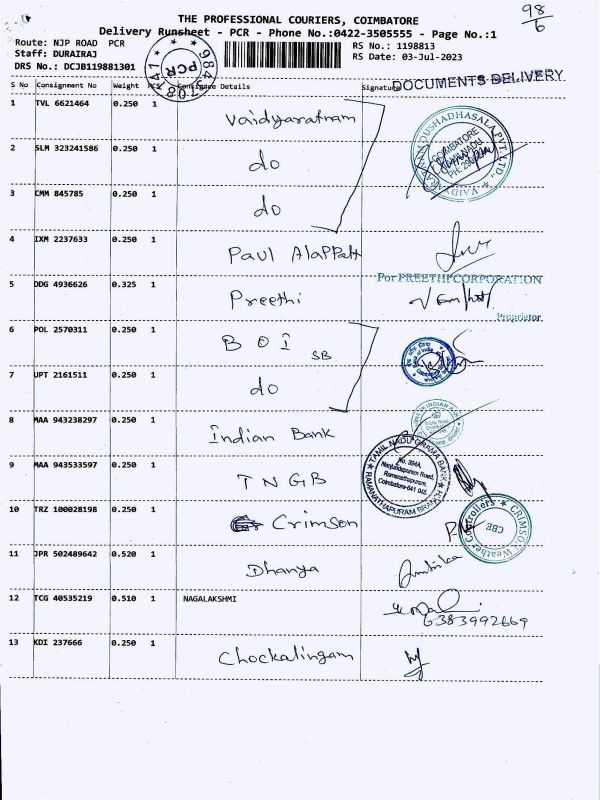 98/6
THE PROFESSIONAL COURIERS, COIMBATORE
Delivery Runsheet - PCR - Phone No.:0422-3505555 - Page No.:1
Route: NJP ROAD PCR
RS No.: 1198813
Staff: DURAIRAJ
RS Date: 03-Jul-2023
DRS No.: DCJB119881301
PCR
DOCUMENTS DELIVERY
S No Consignment No Weight Details Signature
1 TVL 6621464 0.250 1 Vaidyaratnam
VAIDYARATNAM OUSHADHASALA PVT. LTD.,
COIMBATORE
TAMILNADU
2 SLM 323241586 0.250 1 do
3 CMM 845785 0.250 1 do
4 IXM 2237633 0.250 1 Paul Alappatt
5 DDG 4936626 0.325 1 Preethi
For PREETHI CORPORATION
Proprietor
6 POL 2570311 0.250 1 BOI SB
7 UPT 2161511 0.250 1 do
8 MAA 943238297 0.250 1 Indian Bank
INDIAN BANK
9 MAA 943533597 0.250 1 TNGB
TAMIL NADU GRAMA BANK
No. 394A,
Nanjundapuram Road,
Ramanathapuram,
Coimbatore-641 045.
RAMANATHAPURAM BRANCH
10 TRZ 100028198 0.250 1 Crimson
CRIMSON Weather Controllers
CBE
11 JPR 502489642 0.520 1 Dhanya Ambika
12 TCG 40535219 0.510 1 NAGALAKSHMI
6383992669
13 KDI 237666 0.250 1 Chockalingam